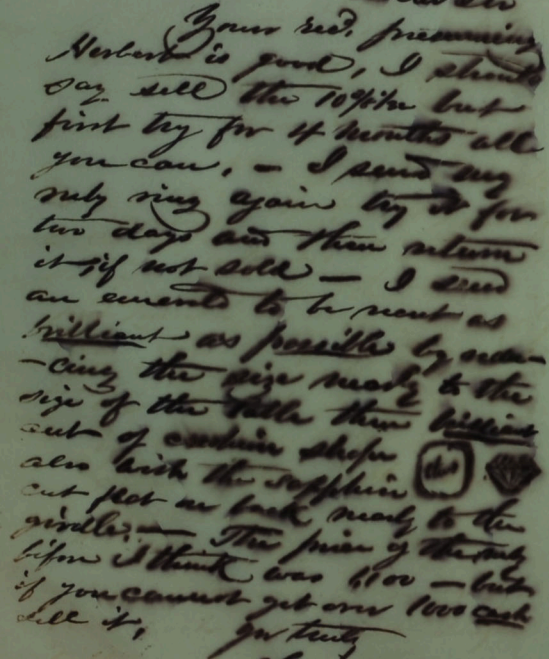 Yours recd. presuming
Herbert is good, I should
say sell the 10 but
first try for 4 months all
you can. — I send my
ruby ring again try it for
two days and then return
it if not sold — I send
an emerald to be recut as
brilliant as possible by redu-
-cing the size nearly to the
size of the table then brilliant
cut of cushion shape
also with the sapphire
cut flat on back nearly to the
girdle. — The price of the ruby
before I think was 1,100 — but
if you cannot get over 1000 cash
sell it,
yrs truly